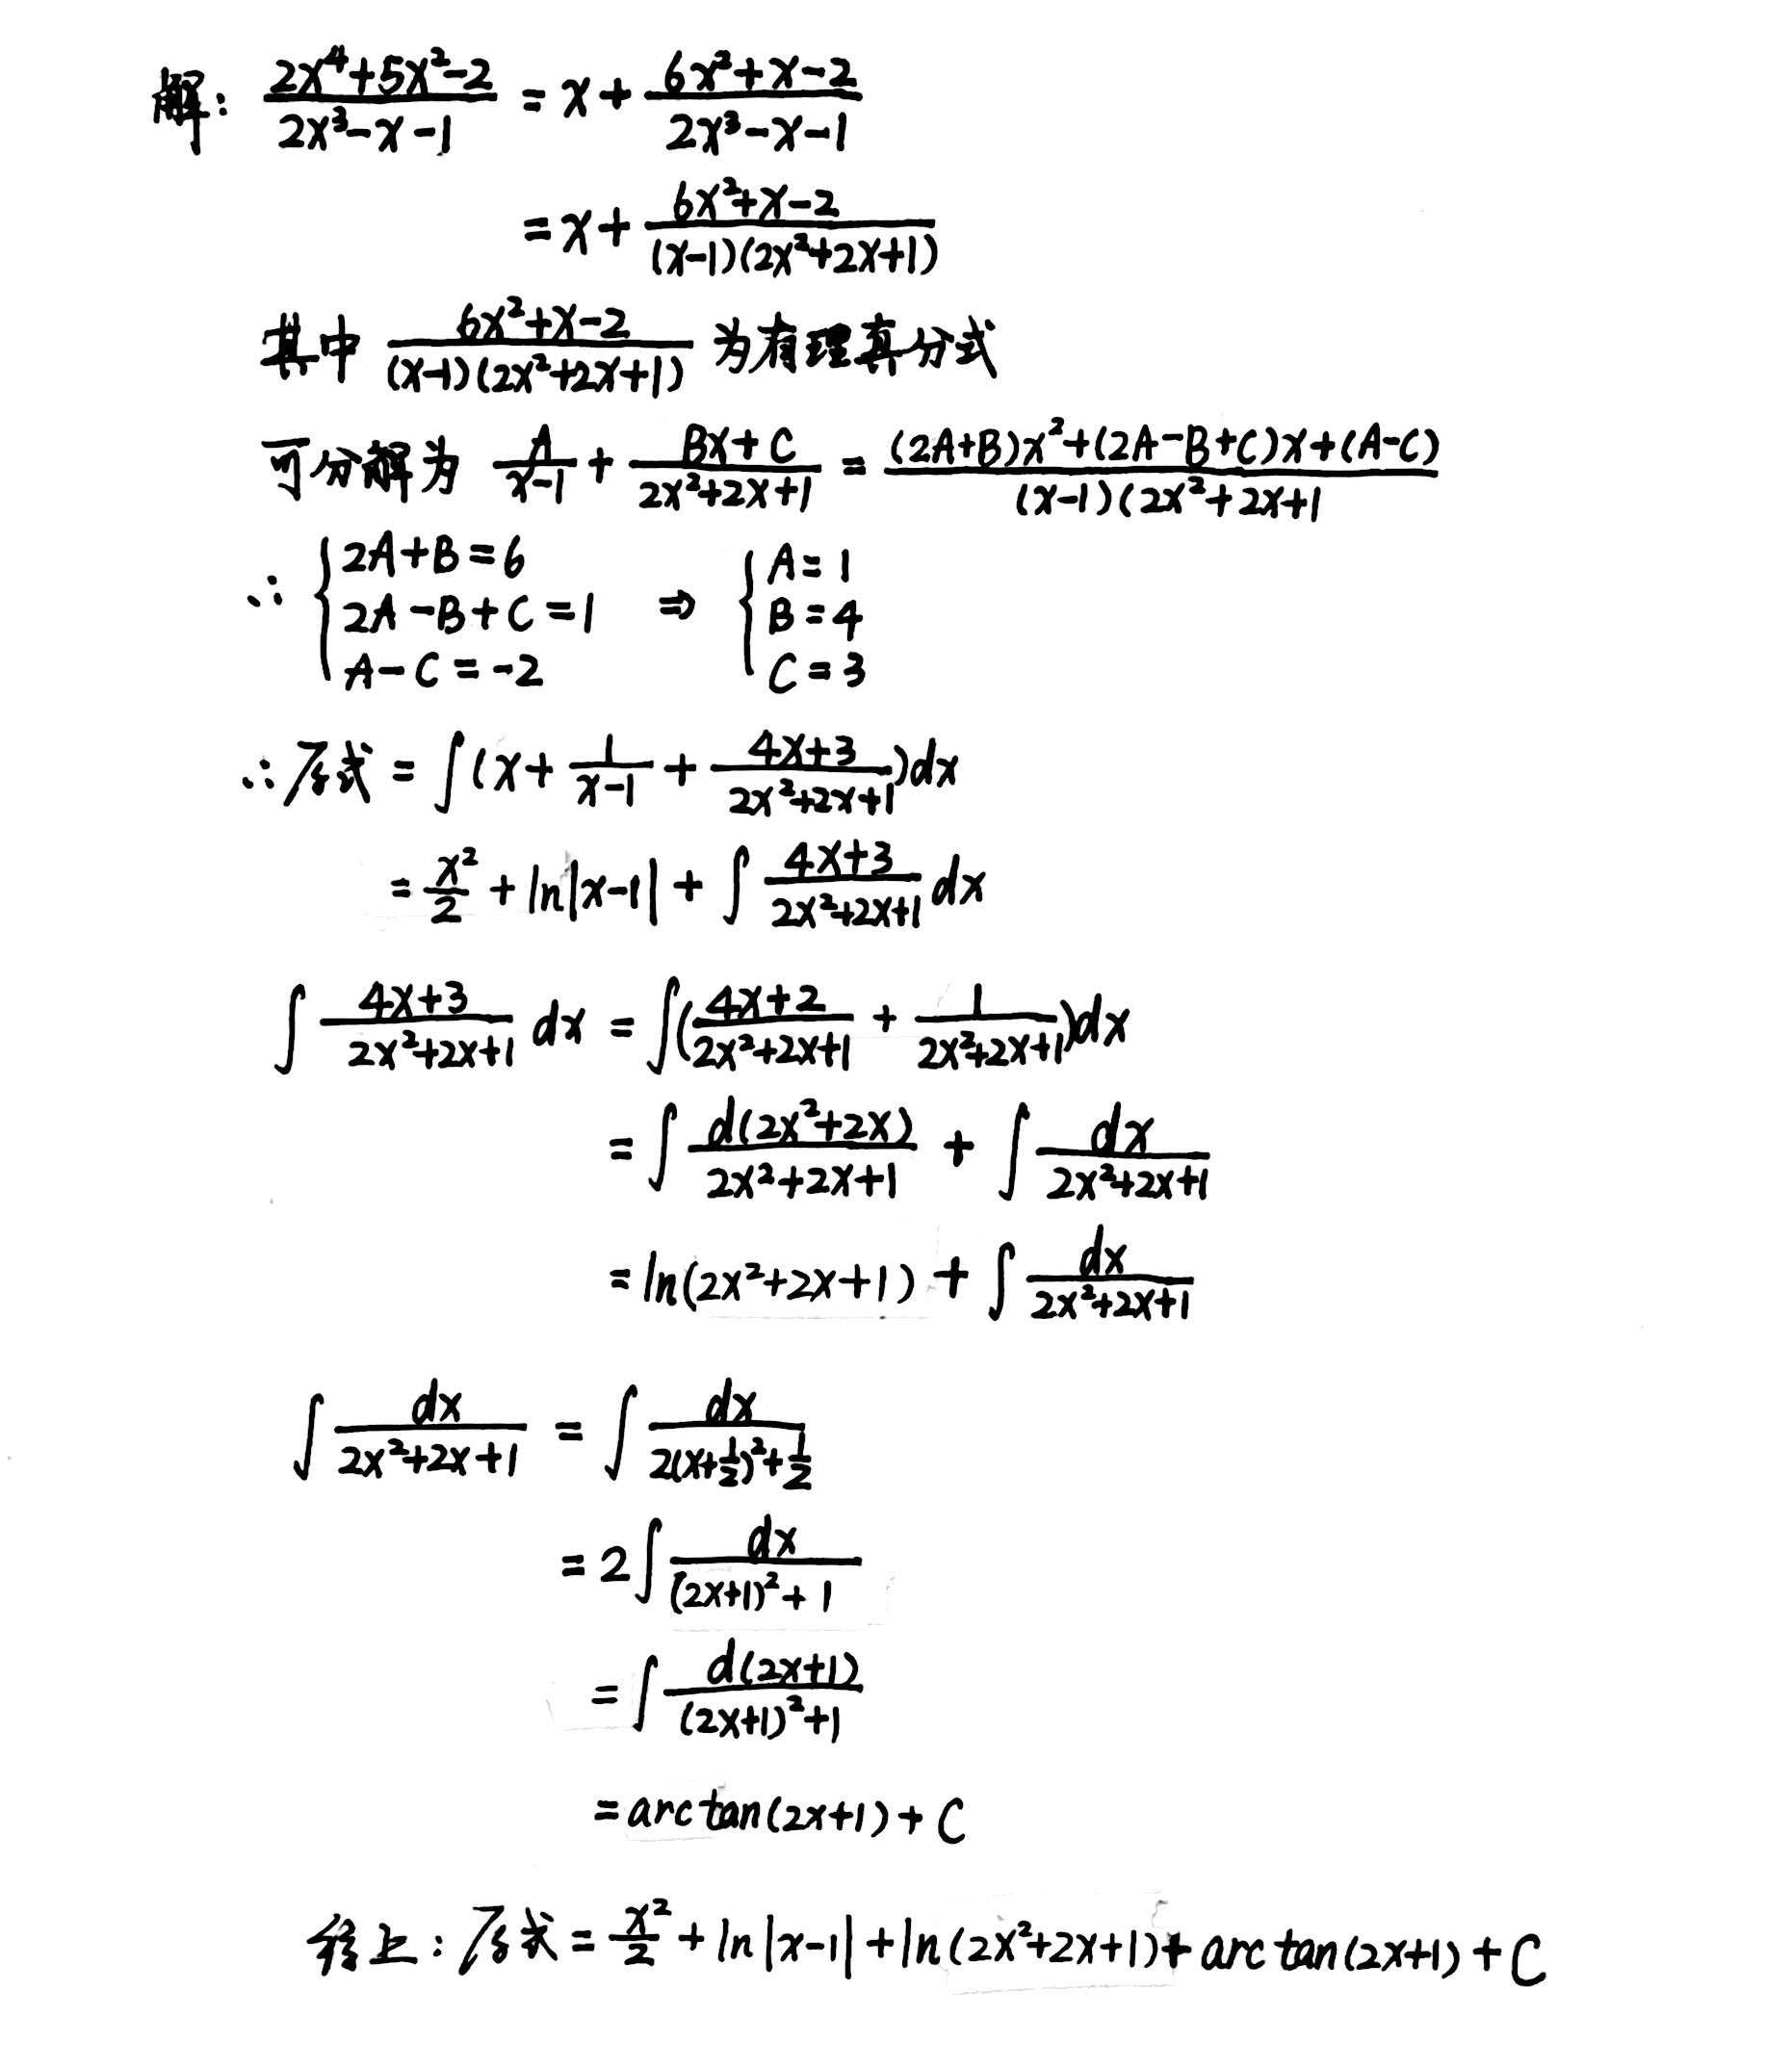 解: (2x⁴+5x²-2)/(2x³-x-1) = x + (6x²+x-2)/(2x³-x-1)
= x + (6x²+x-2)/((x-1)(2x²+2x+1))
其中 (6x²+x-2)/((x-1)(2x²+2x+1)) 为有理真分式
可分解为 A/(x-1) + (Bx+C)/(2x²+2x+1) = ((2A+B)x²+(2A-B+C)x+(A-C))/((x-1)(2x²+2x+1
∴ { 2A+B=6 ⇒ { A=1
2A-B+C=1 B=4
A-C=-2 C=3
∴原式 = ∫(x + 1/(x-1) + (4x+3)/(2x²+2x+1))dx
= x²/2 + ln|x-1| + ∫ (4x+3)/(2x²+2x+1) dx
∫ (4x+3)/(2x²+2x+1) dx = ∫((4x+2)/(2x²+2x+1) + 1/(2x²+2x+1))dx
= ∫ d(2x²+2x)/(2x²+2x+1) + ∫ dx/(2x²+2x+1)
= ln(2x²+2x+1) + ∫ dx/(2x²+2x+1)
∫ dx/(2x²+2x+1) = ∫ dx/(2(x+1/2)²+1/2)
= 2∫ dx/((2x+1)²+1)
= ∫ d(2x+1)/((2x+1)²+1)
= arctan(2x+1)+C
综上: 原式 = x²/2 + ln|x-1| + ln(2x²+2x+1) + arctan(2x+1) + C